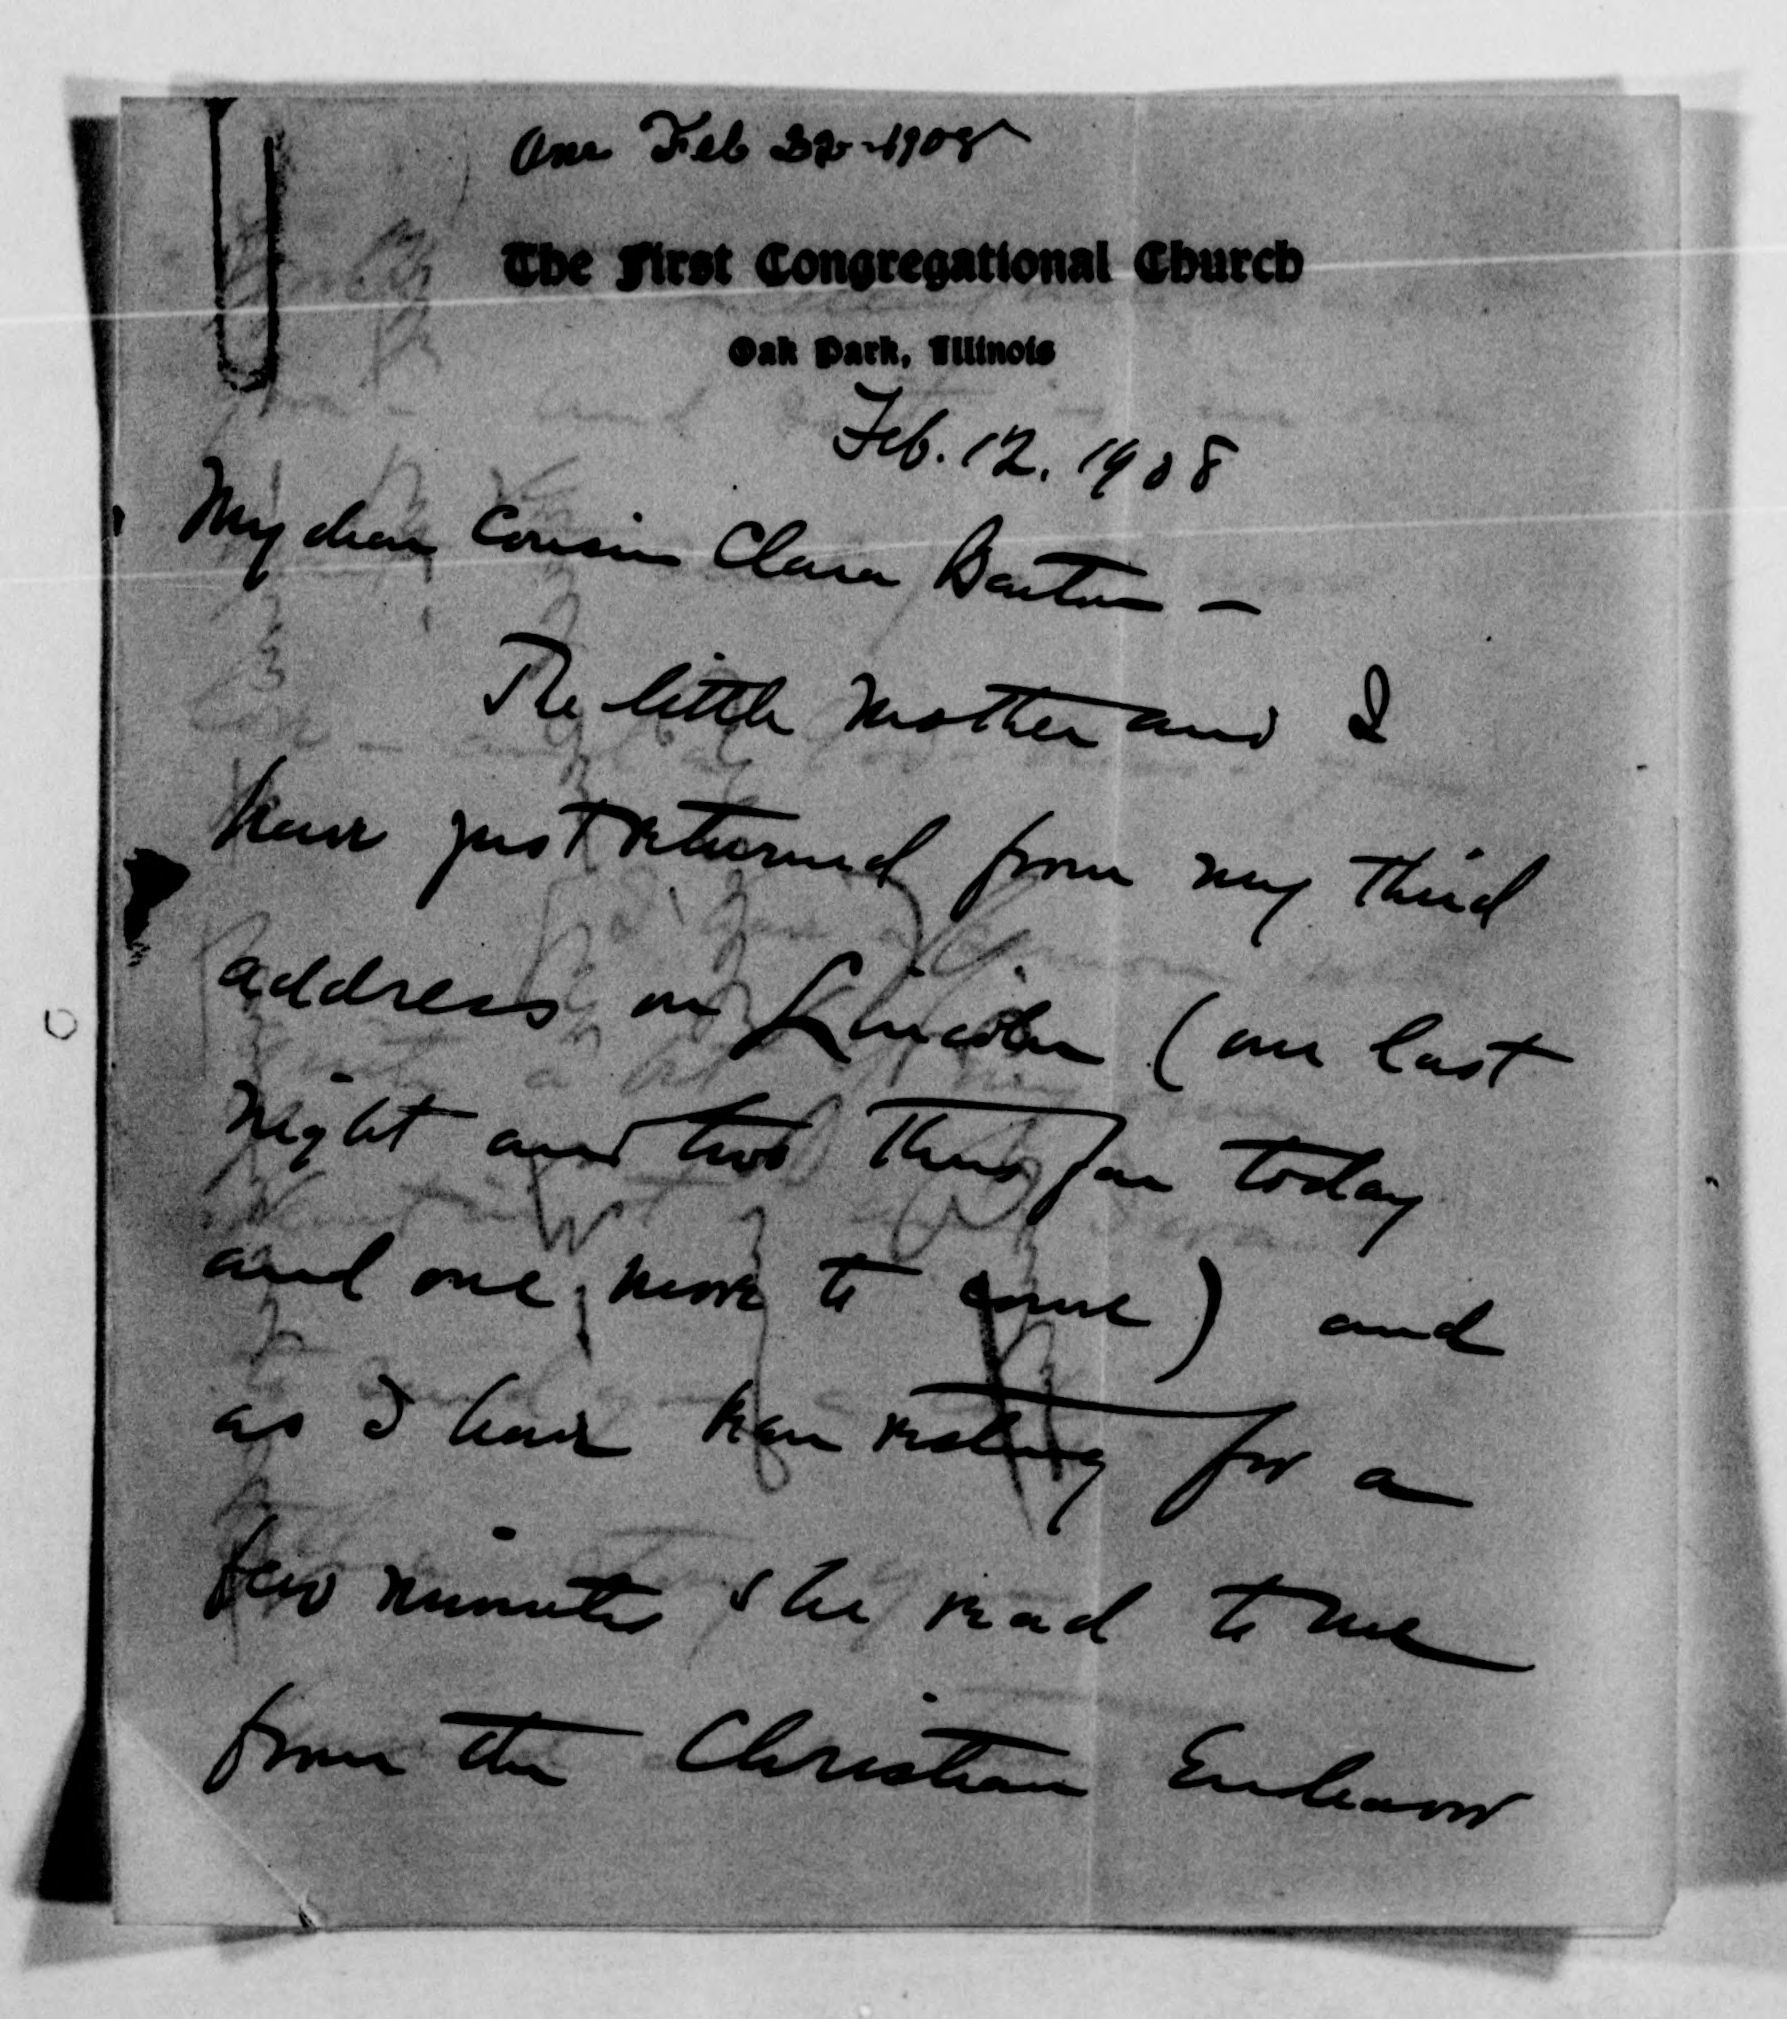 Ans Feb 22-1908
The First Congregational Church
Oak Park, Illinois
Feb. 12, 1908
My dear Cousin Clara Barton —
The little mother and I
have just returned from my third
address on Lincoln (one last
night and two thus far today
and one more to come) and
as I have been resting for a
few minutes she read to me
from the Christian Endeavor